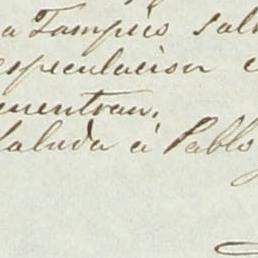 a Tampico sal
especulacion e
uentran.
Saluda á Pablo